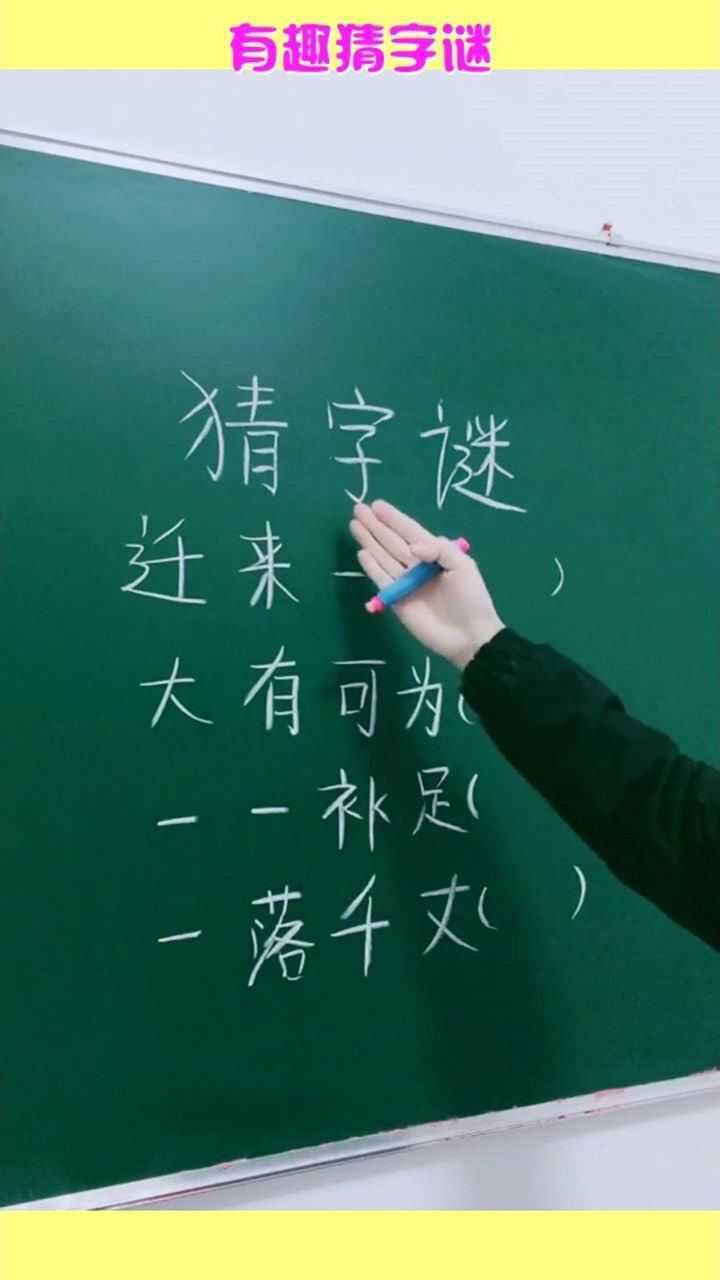 有趣猜字谜
猜字谜
迁来一 )
大有可为(
一一补足(
一落千丈( )